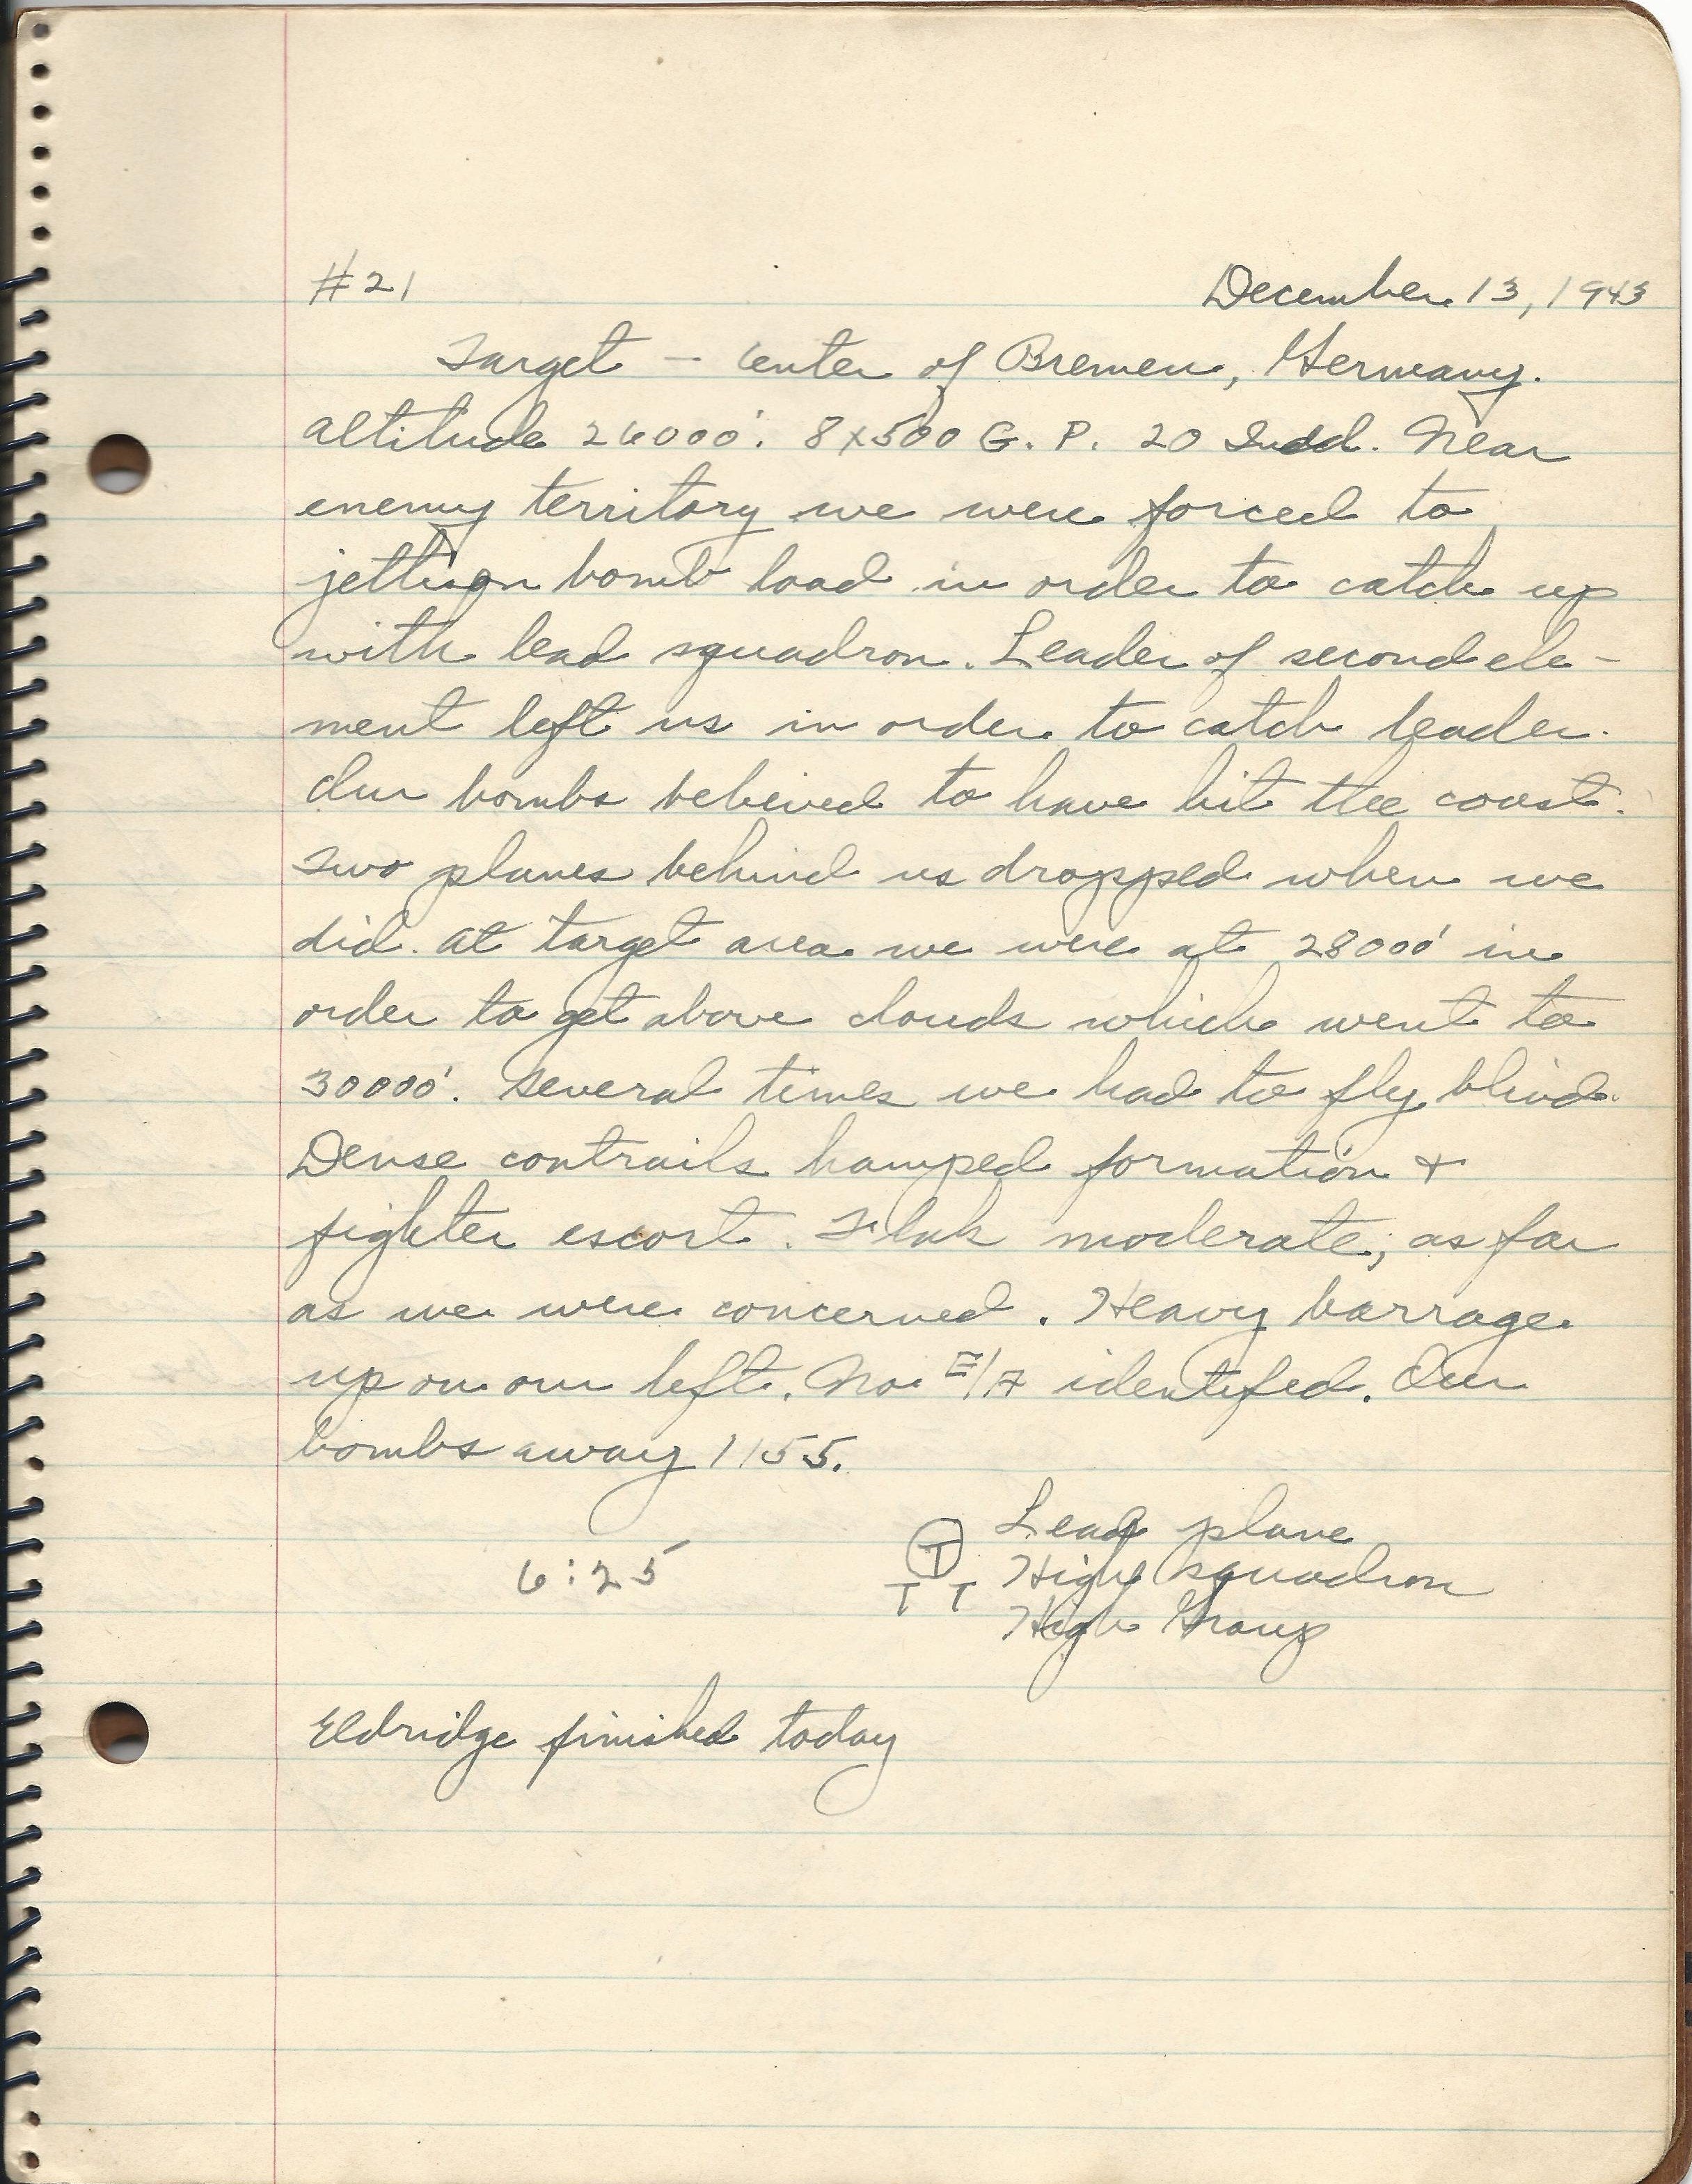 #21 December 13, 1943
Target - Center of Bremen, Germany.
Altitude 26000'. 8x500 G. P. 20 Near
enemy territory we were forced to
jettison bomb load in order to catch up
with lead squadron. Leader of second ele-
ment left us in order to catch leader.
Our bombs believed to have hit the coast.
Two planes behind us dropped when we
did. At target area we were at 28000' in
order to get above clouds which went to
30000'. Several times we had to fly blind.
Dense contrails hamped formation +
fighter escort. Flak moderate, as far
as we were concerned. Heavy barrage
up on our left. No E/A identifed. Our
bombs away 1155.
T Lead plane
6:25 T T High squadron
High Group
Eldridge finished today